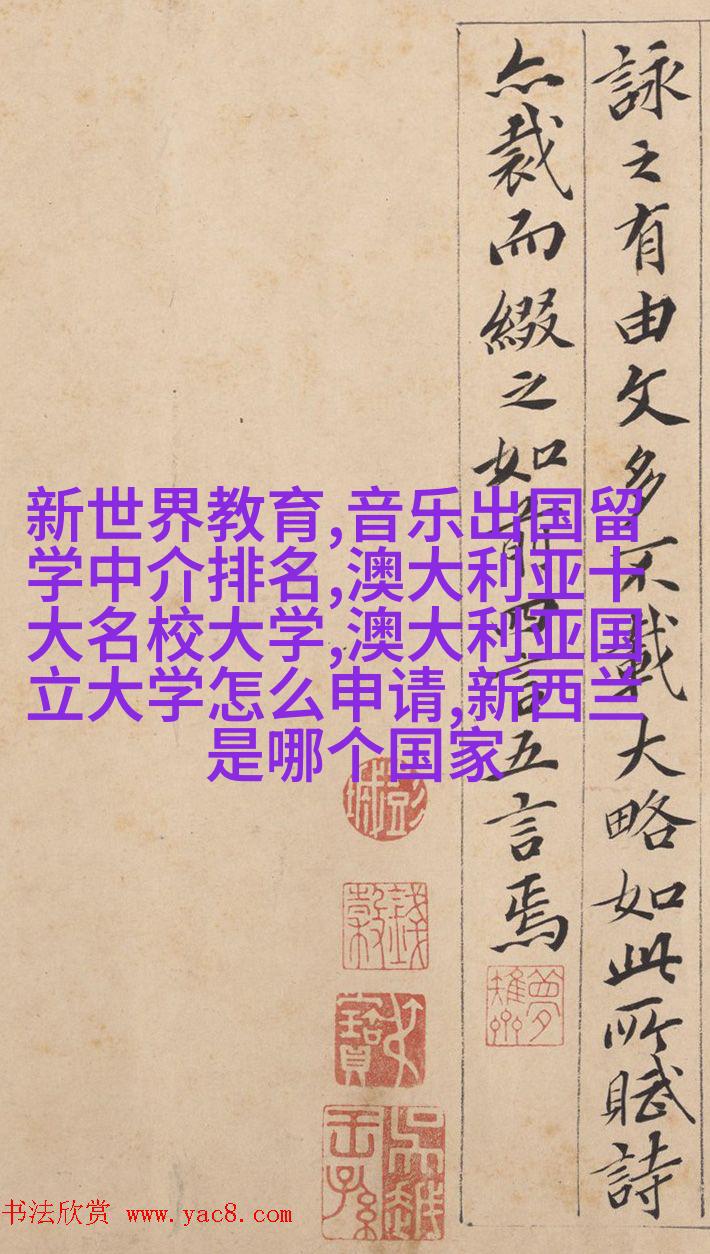 詠之有由文多不載大略如此所賦詩
亦裁而綴之如前四言五言焉
新世界教育,音乐出国留
学中介排名,澳大利亚十
大名校大学,澳大利亚国
立大学怎么申请,新西兰
是哪个国家
书法欣赏 www.yac8.com